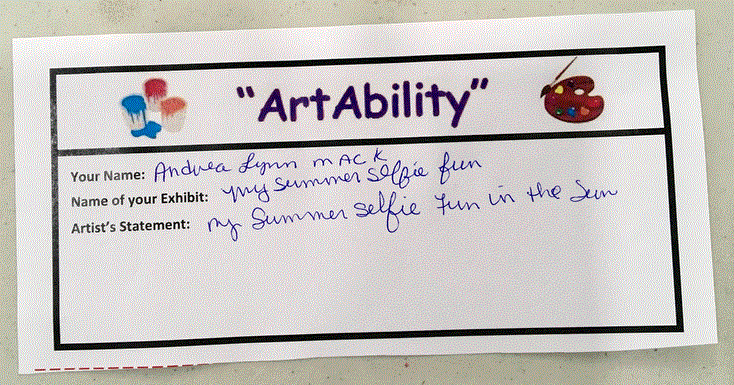 "ArtAbility"
Your Name: Andrea Lynn mACK
Name of your Exhibit: my summer selfie fun
Artist's Statement: my Summer selfie Fun in the Sun